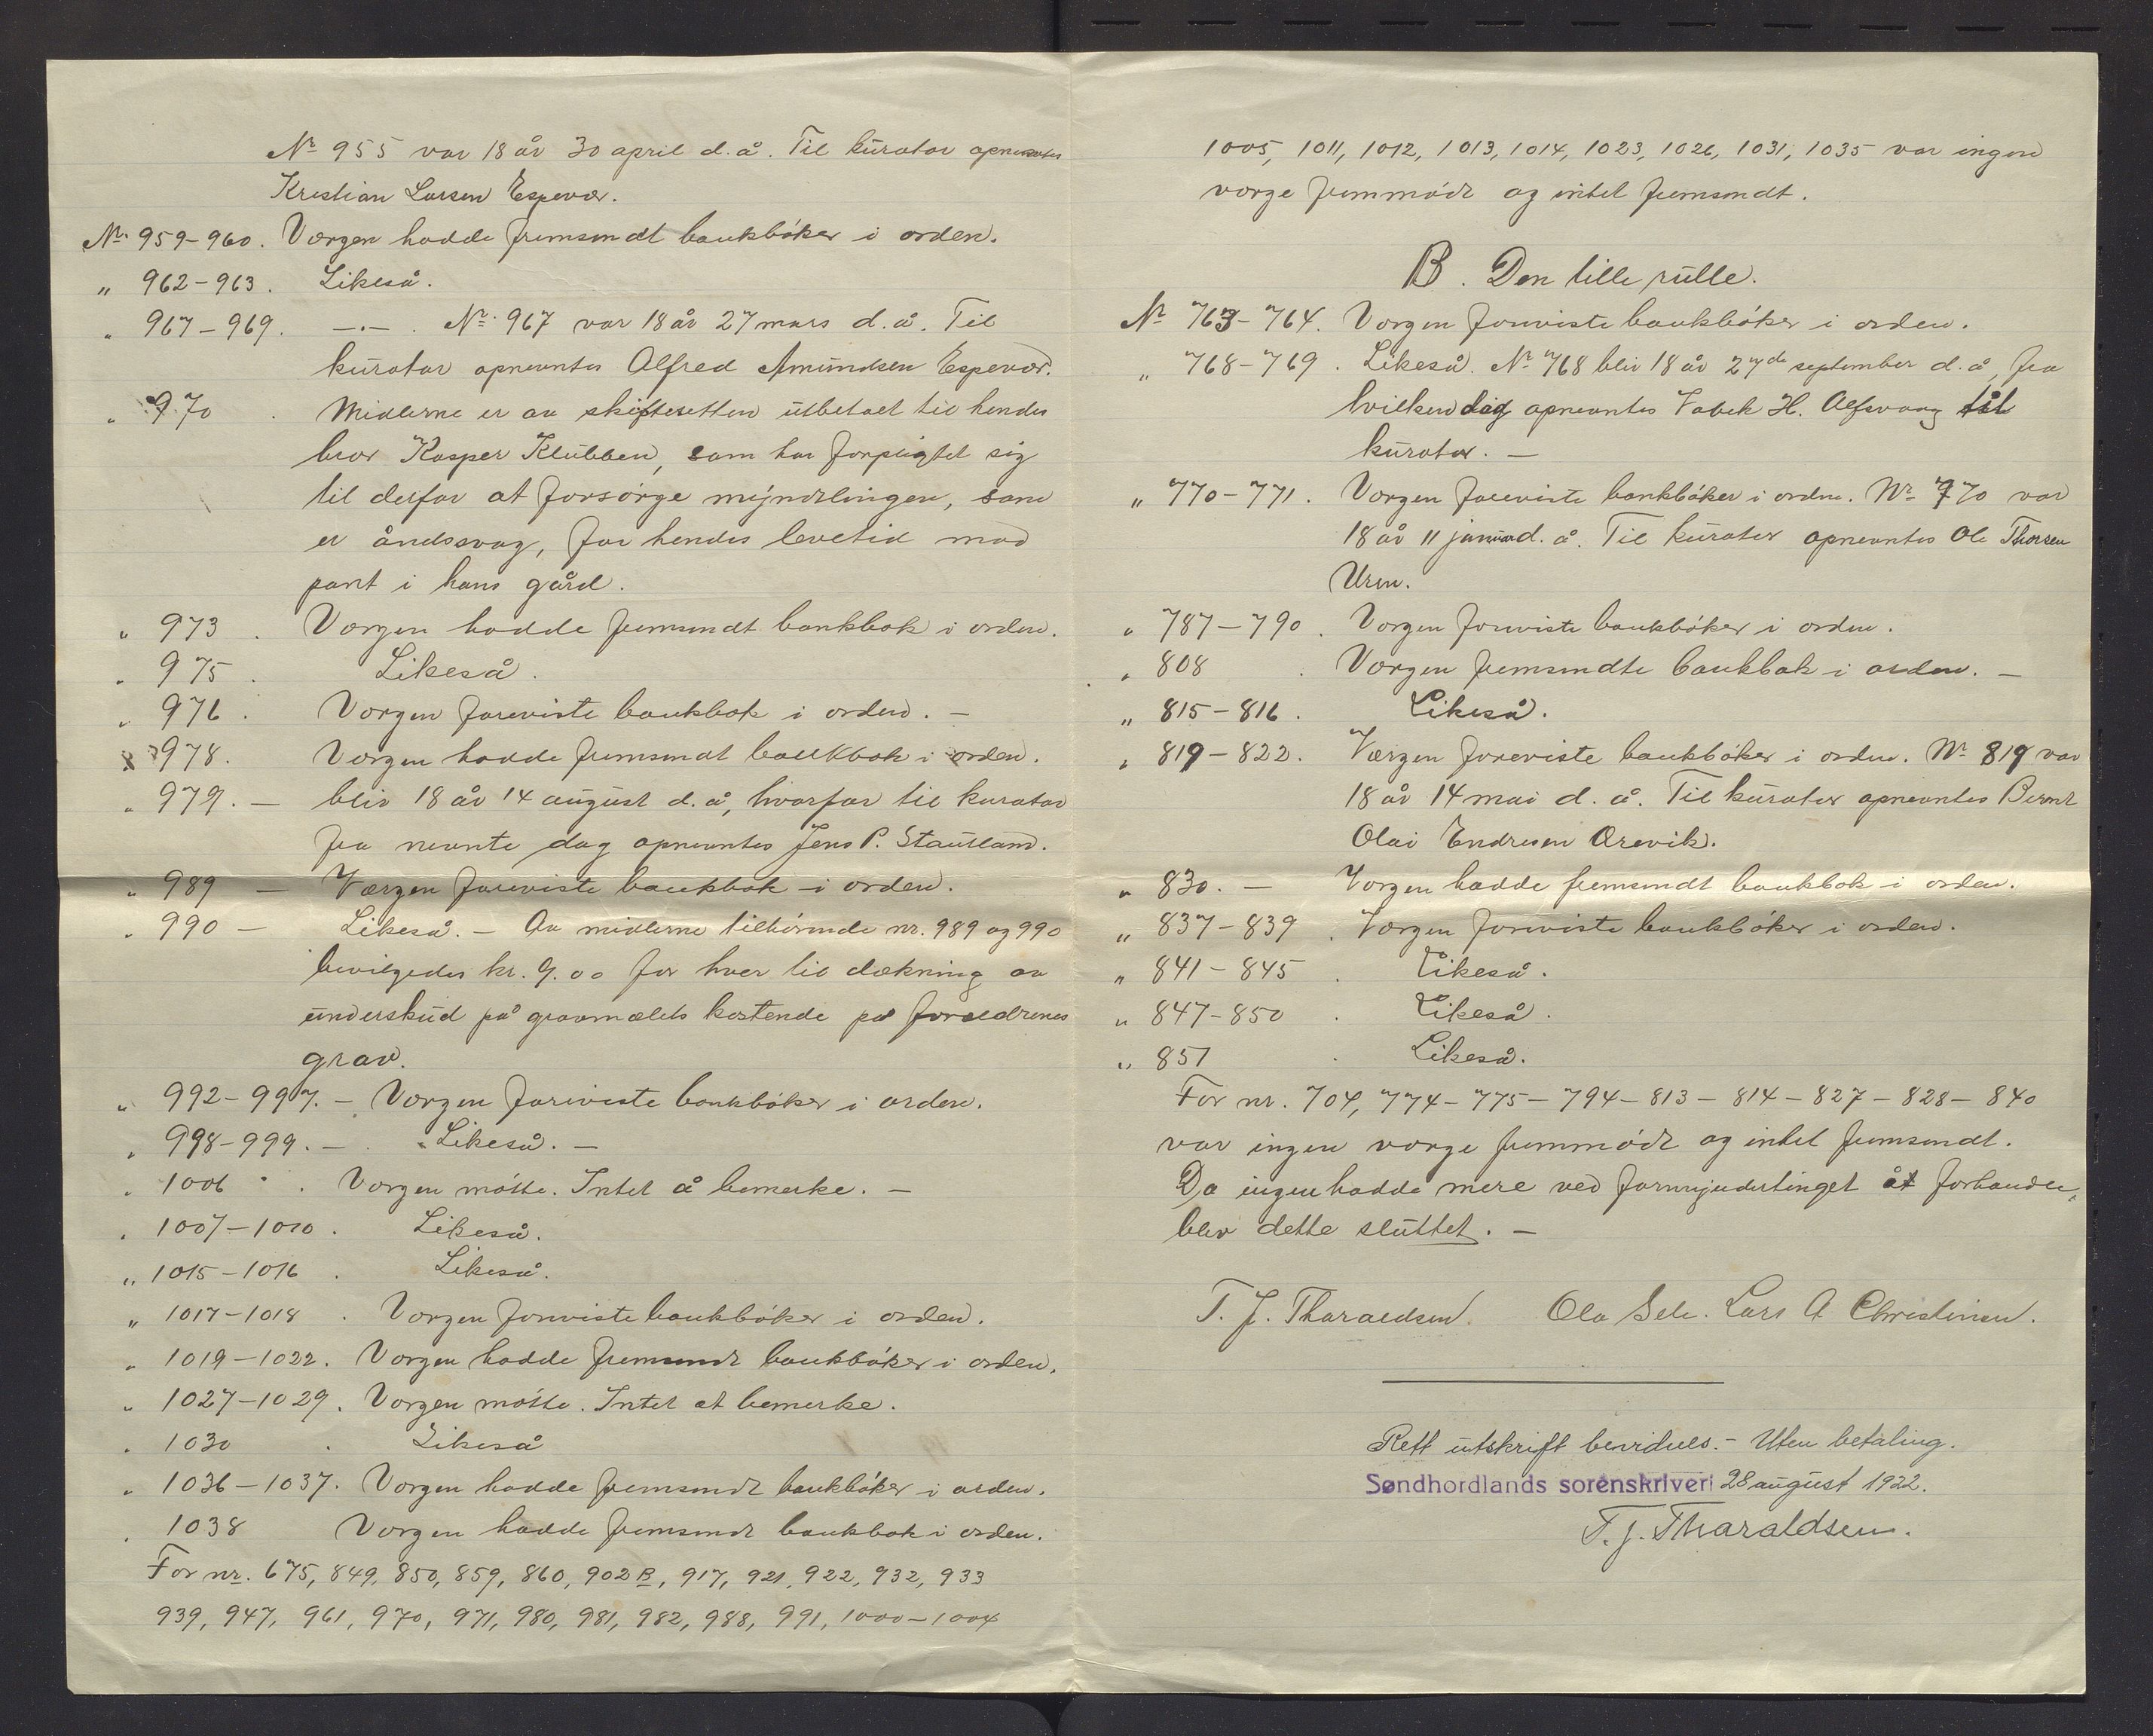 Nr 955 var 18 år 30 april d.å. Til kurator opnevntes
Kristian Larsen Espevær.
Nr. 959-960. Værgen hadde fremsendt bankbøker i orden.
" 962-963. Likeså.
" 967-969. —.— . Nr. 967 var 18 år 27 mars d.å. Til
kurator opnevntes Alfred Amundsen Espevær.
" 970 . Midlerne er av skifteretten utbetalt til hendes
bror Kasper Klubben, som har forpligtet sig
til derfor at forsørge myndlingen, som
er åndssvag, for hendes levetid mod
pant i hans gård.
" 973 . Værgen hadde fremsendt bankbok i orden.
" 975 . Likeså.
" 976 . Værgen foreviste bankbok i orden. —
" 978. Værgen hadde fremsendt bankbok i orden.
" 979. — blir 18 år 14 august d.å, hvorfor til kurator
fra nevnte dag opnevntes Jens P. Stautland.
" 989 — Værgen foreviste bankbok i orden.
" 990 — Likeså. — Av midlerne tilhørende nr. 989 og 990
bevilgedes kr. 9.00 for hver til dækning av
underskud på gravmælets kostende på forældrenes
grav.
" 992-997. — Værgen foreviste bankbøker i orden.
" 998-999. — . Likeså. —
" 1006 . Værgen møtte. Intet å bemerke. —
" 1007-1010 . Likeså.
" 1015-1016 . Likeså.
" 1017-1018 . Værgen foreviste bankbøker i orden.
" 1019-1022. Værgen hadde fremsendt bankbøker i orden.
" 1027-1029. Værgen møtte. Intet at bemerke.
" 1030 . Likeså
" 1036-1037. Værgen hadde fremsendt bankbøker i orden.
" 1038 Værgen hadde fremsendt bankbok i orden.
For nr. 675, 849, 850, 859, 860, 902 B, 917, 921, 922, 932, 933
939, 947, 961, 970, 971, 980, 981, 982, 988, 991, 1000-1004
1005, 1011, 1012, 1013, 1014, 1023, 1026, 1031, 1035 var ingen
værge fremmødt og intet fremsendt.
B. Den lille rulle.
Nr 763-764. Værgen foreviste bankbøker i orden.
" 768-769 . Likeså. Nr 768 blir 18 år 27de september d.å, fra
hvilken dag opnevntes H. Alfsvaag til
kurator. —
" 770-771 . Værgen foreviste bankbøker i orden. Nr 770 var
18 år 11 januar d.å. Til kurator opnevntes Ole Thorsen
Uren.
" 787-790 . Værgen foreviste bankbøker i orden.
" 808 . Værgen fremsendte bankbok i orden. —
" 815-816 . Likeså.
" 819-822. Værgen foreviste bankbøker i orden. Nr 819 var
18 år 14 mai d.å. Til kurator opnevntes Bernt
Olai Endresen Orevik.
" 830. — Værgen hadde fremsendt bankbok i orden.
" 837-839 . Værgen foreviste bankbøker i orden.
" 841-845 . Likeså.
" 847-850 . Likeså.
" 851 . Likeså.
For nr. 704, 774-775-794-813-814-827-828-840
var ingen værge fremmødt og intet fremsendt.
Da ingen hadde mere ved formynderting et at forhandle,
blev dette sluttet. —
T. J. Tharaldsen. Ola Sele. Lars A Christensen.
Rett utskrift bevidnes. — Uten betaling.
Søndhordlands sorenskriveri 28 august 1922.
T. J. Tharaldsen.